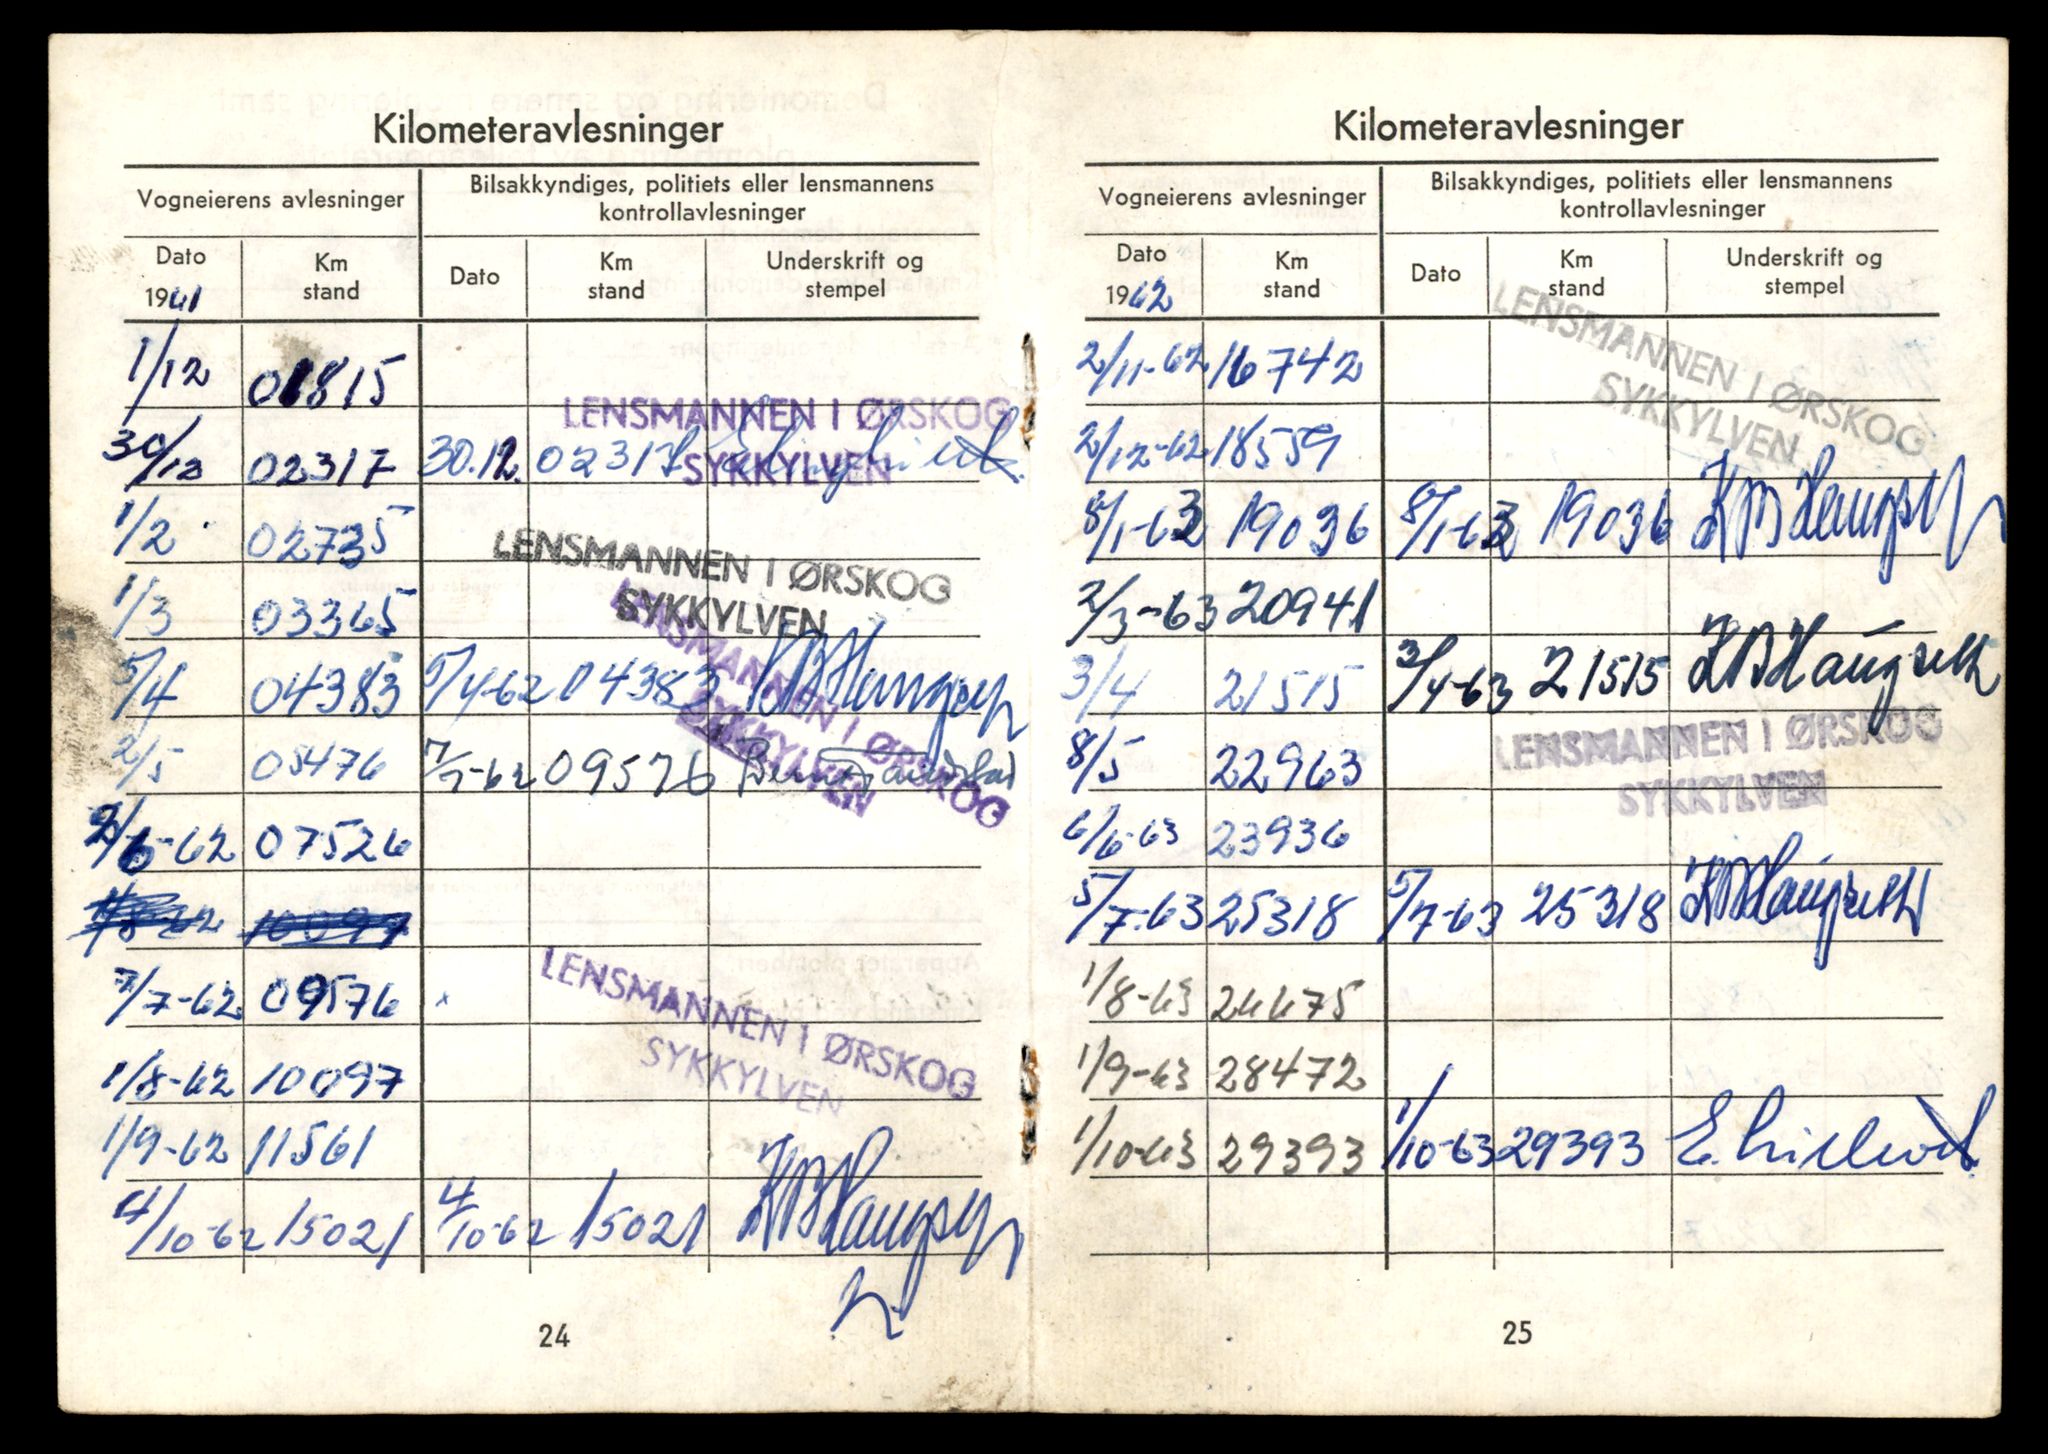 Kilometeravlesninger
Vogneierens avlesninger
Bilsakkyndiges, politiets eller lensmannens
kontrollavlesninger
Dato
1961
Km
stand
Dato
Km
stand
Underskrift og
stempel
1/12 01815
LENSMANNEN I ØRSKOG
SYKKYLVEN
30/12 02317 30.12. 02317
1/2 02735
LENSMANNEN I ØRSKOG
SYKKYLVEN
1/3 03365
LENSMANNEN I ØRSKOG
SYKKYLVEN
5/4 04383 5/4-62 04383 KB Haugseth
2/5 05476 7/7-62 09576
2/6-62 07526
1/8-62 10097
7/7-62 09576
LENSMANNEN I ØRSKOG
SYKKYLVEN
1/8-62 10097
1/9-62 11561
4/10-62 15021 4/10-62 15021 KB Haugseth
24
Kilometeravlesninger
Vogneierens avlesninger
Bilsakkyndiges, politiets eller lensmannens
kontrollavlesninger
Dato
1962
Km
stand
Dato
Km
stand
Underskrift og
stempel
LENSMANNEN I ØRSKOG
SYKKYLVEN
2/11-62 16742
2/12-62 18559
8/1-63 19036 8/1-63 19036 KB Haugseth
2/3-63 20941
3/4 21515 3/4-63 21515 KB Haugseth
LENSMANNEN I ØRSKOG
SYKKYLVEN
8/5 22963
6/6-63 23936
5/7-63 25318 5/7-63 25318 KB Haugseth
1/8-63 26675
1/9-63 28472
1/10-63 29393 1/10-63 29393
25